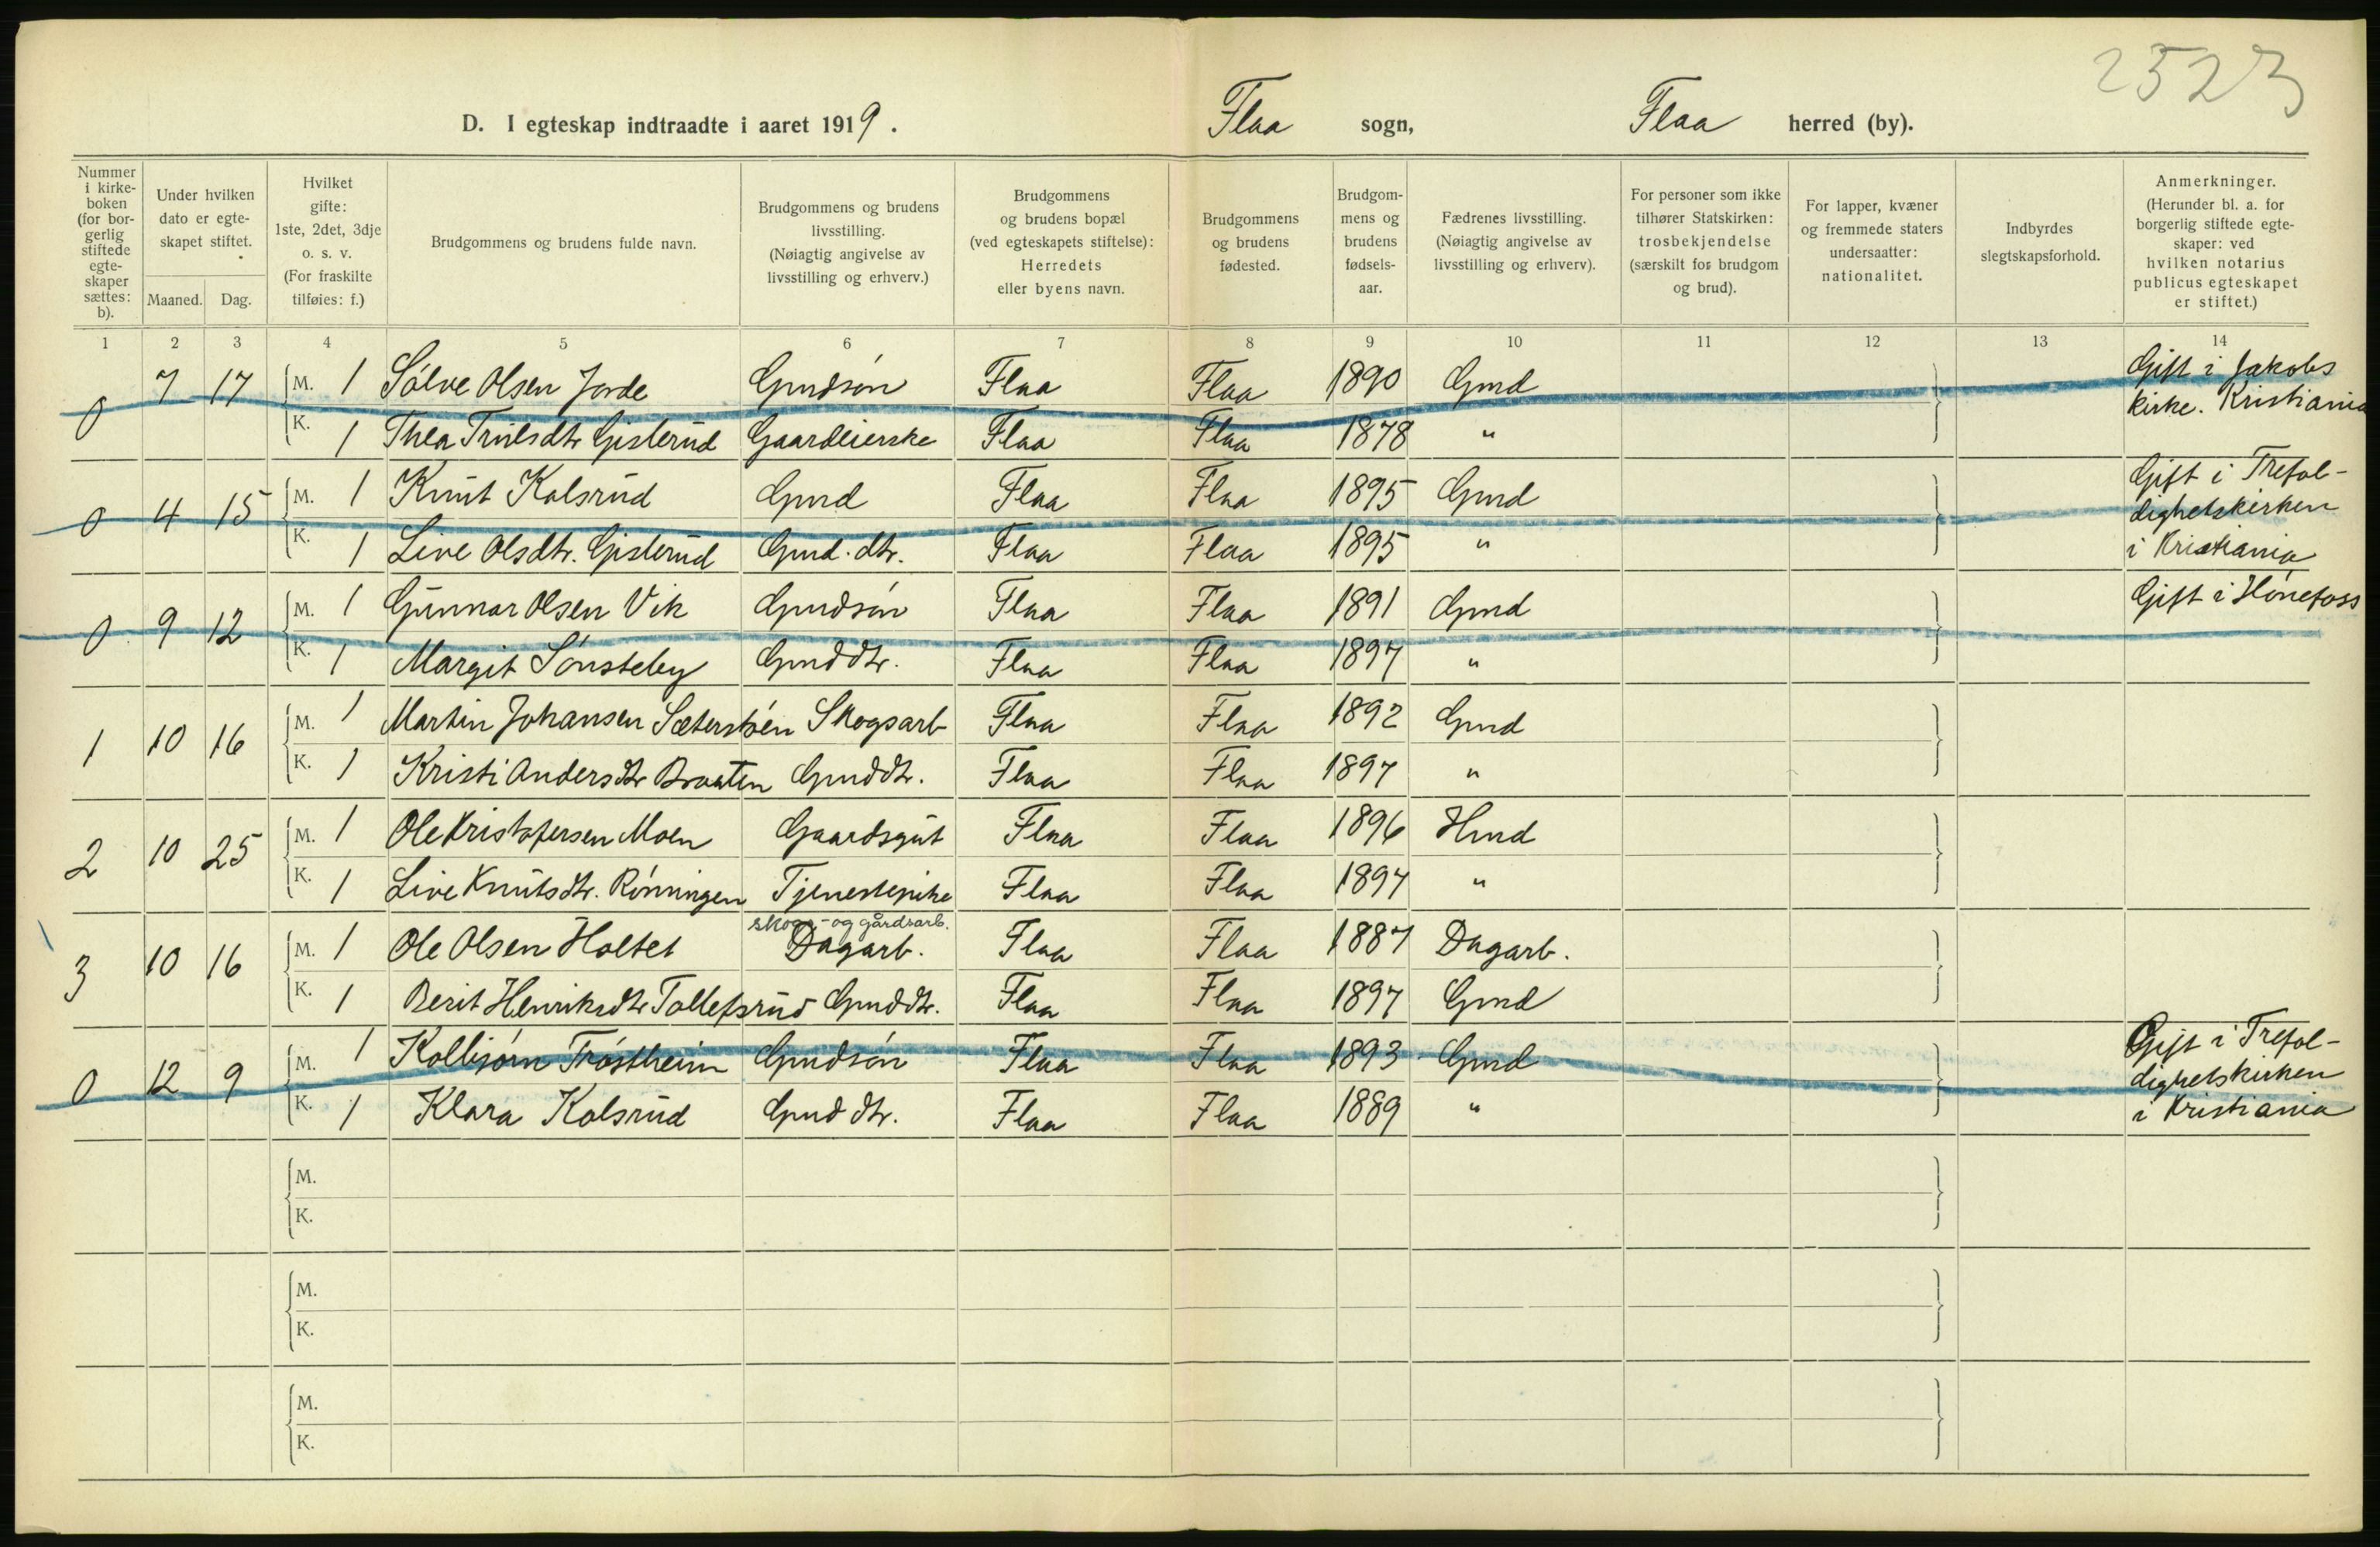 2523
D. I egteskap indtraadte i aaret 1919. Flaa sogn, Flaa herred (by).
Nummer i kirke-boken (for bor-gerlig stiftede egte-skaper sættes: b).
Under hvilken dato er egte-skapet stiftet.
Maaned. Dag.
Hvilket gifte: 1ste, 2det, 3dje o. s. v. (For fraskilte tilføies: f.)
Brudgommens og brudens fulde navn.
Brudgommens og brudens livsstilling. (Nøiagtig angivelse av livsstilling og erhverv.)
Brudgommens og brudens bopæl (ved egteskapets stiftelse): Herredets eller byens navn.
Brudgommens og brudens fødested.
Brudgom-mens og brudens fødsels-aar.
Fædrenes livsstilling. (Nøiagtig angivelse av livsstilling og erhverv).
For personer som ikke tilhører Statskirken: trosbekjendelse (særskilt for brudgom og brud).
For lapper, kvæner og fremmede staters undersaatter: nationalitet.
Indbyrdes slegtskapsforhold.
Anmerkninger. (Herunder bl. a. for borgerlig stiftede egte-skaper: ved hvilken notarius publicus egteskapet er stiftet.)
1 2 3 4 5 6 7 8 9 10 11 12 13 14
0 7 17 M. 1 Sölve Olsen Jorde Gmdsön Flaa Flaa 1890 Gmd Gift i Jakobs
kirke. Kristiania
K. 1 Thea Trulsdtr Gislerud Gaardeierske Flaa Flaa 1878 "
0 4 15 M. 1 Knut Kolsrud Gmd Flaa Flaa 1895 Gmd Gift i Trefol-
dighetskirken
K. 1 Live Olsdtr. Gislerud Gmd. dtr. Flaa Flaa 1895 " i Kristiania
0 9 12 M. 1 Gunnar Olsen Vik Gmdsön Flaa Flaa 1891 Gmd Gift i Hönefoss
K. 1 Margit Sönsteby Gmddtr. Flaa Flaa 1897 "
1 10 16 M. 1 Martin Johansen Sæterstöen Skogsarb Flaa Flaa 1892 Gmd
K. 1 Kristi Andersdtr Braaten Gmddtr. Flaa Flaa 1897 "
2 10 25 M. 1 Ole Kristofersen Moen Gaardsgut Flaa Flaa 1896 Hmd
K. 1 Live Knutsdtr. Rönningen Tjenestepike Flaa Flaa 1897 "
skogs- og gårdsarb.
3 10 16 M. 1 Ole Olsen Holtet Dagarb. Flaa Flaa 1887 Dagarb.
K. 1 Berit Henriksdtr Tollefsrud Gmddtr. Flaa Flaa 1897 Gmd
0 12 9 M. 1 Kolbjörn Tröstheim Gmdsön Flaa Flaa 1893 Gmd Gift i Trefol-
dighetskirken
K. 1 Klara Kolsrud Gmddtr. Flaa Flaa 1889 " i Kristiania
M.
K.
M.
K.
M.
K.